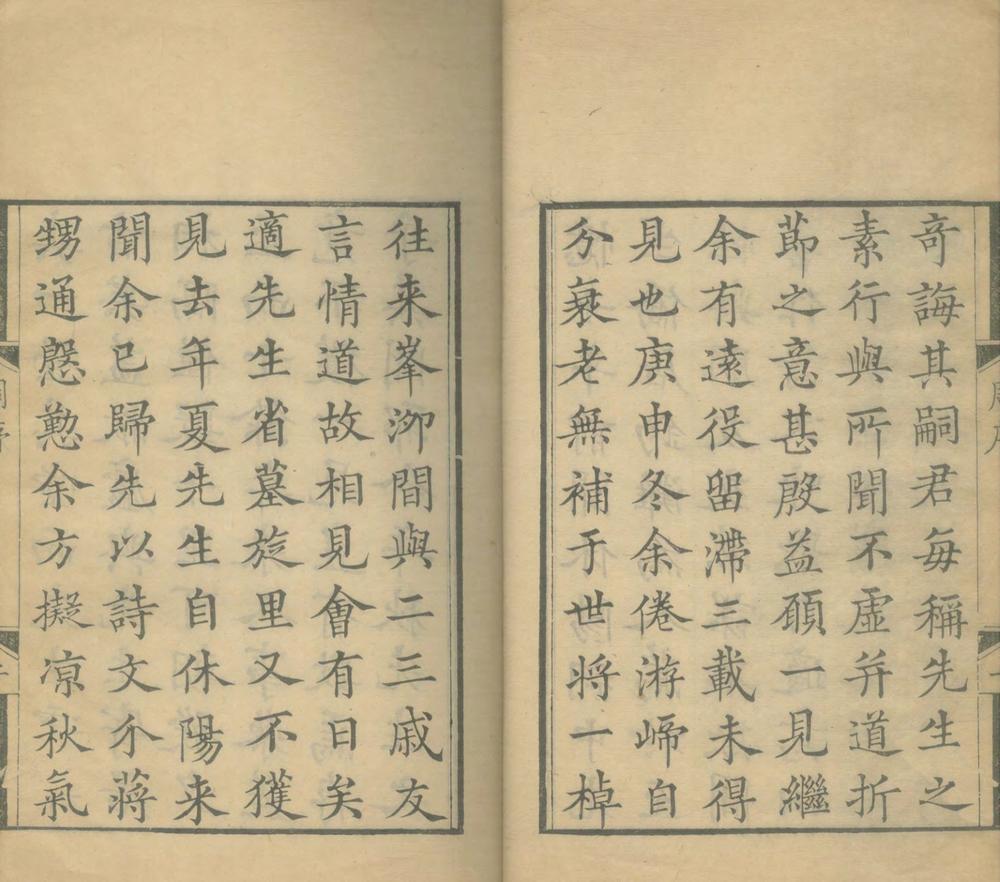 奇誨其嗣君每稱先生之
素行與所聞不虛并道折
節之意甚殷益願一見繼
余有遠役留滯三載未得
見也庚申冬余倦游歸自
分衰老無補于世将一棹
往来峯泖間與二三戚友
言情道故相見會有日矣
適先生省墓旋里又不獲
見去年夏先生自休陽来
聞余已歸先以詩文介蔣
甥通慇懃余方擬凉秋氣